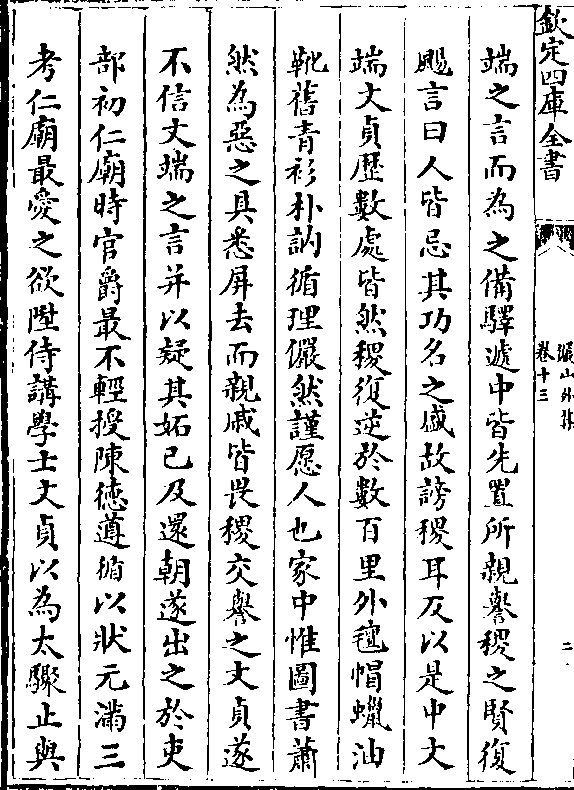 欽定四庫全書
儼山外集
卷十三
二
端之言而為之備驛遞中皆先置所親譽稷之賢復
颺言曰人皆忌其功名之盛故謗稷耳反以是中大
端文貞歴數處皆然稷復逆於數百里外氊帽蠟油
靴舊青衫朴訥循理儼然謹愿人也家中惟圖書蕭
然為惡之具悉屏去而親戚皆畏稷交譽之文貞遂
不信文端之言并以疑其妬已及還朝遂出之於吏
部初仁廟時官爵最不輕授陳徳遵循以狀元滿三
考仁廟最愛之欲陞侍講學士文貞以為太驟止與